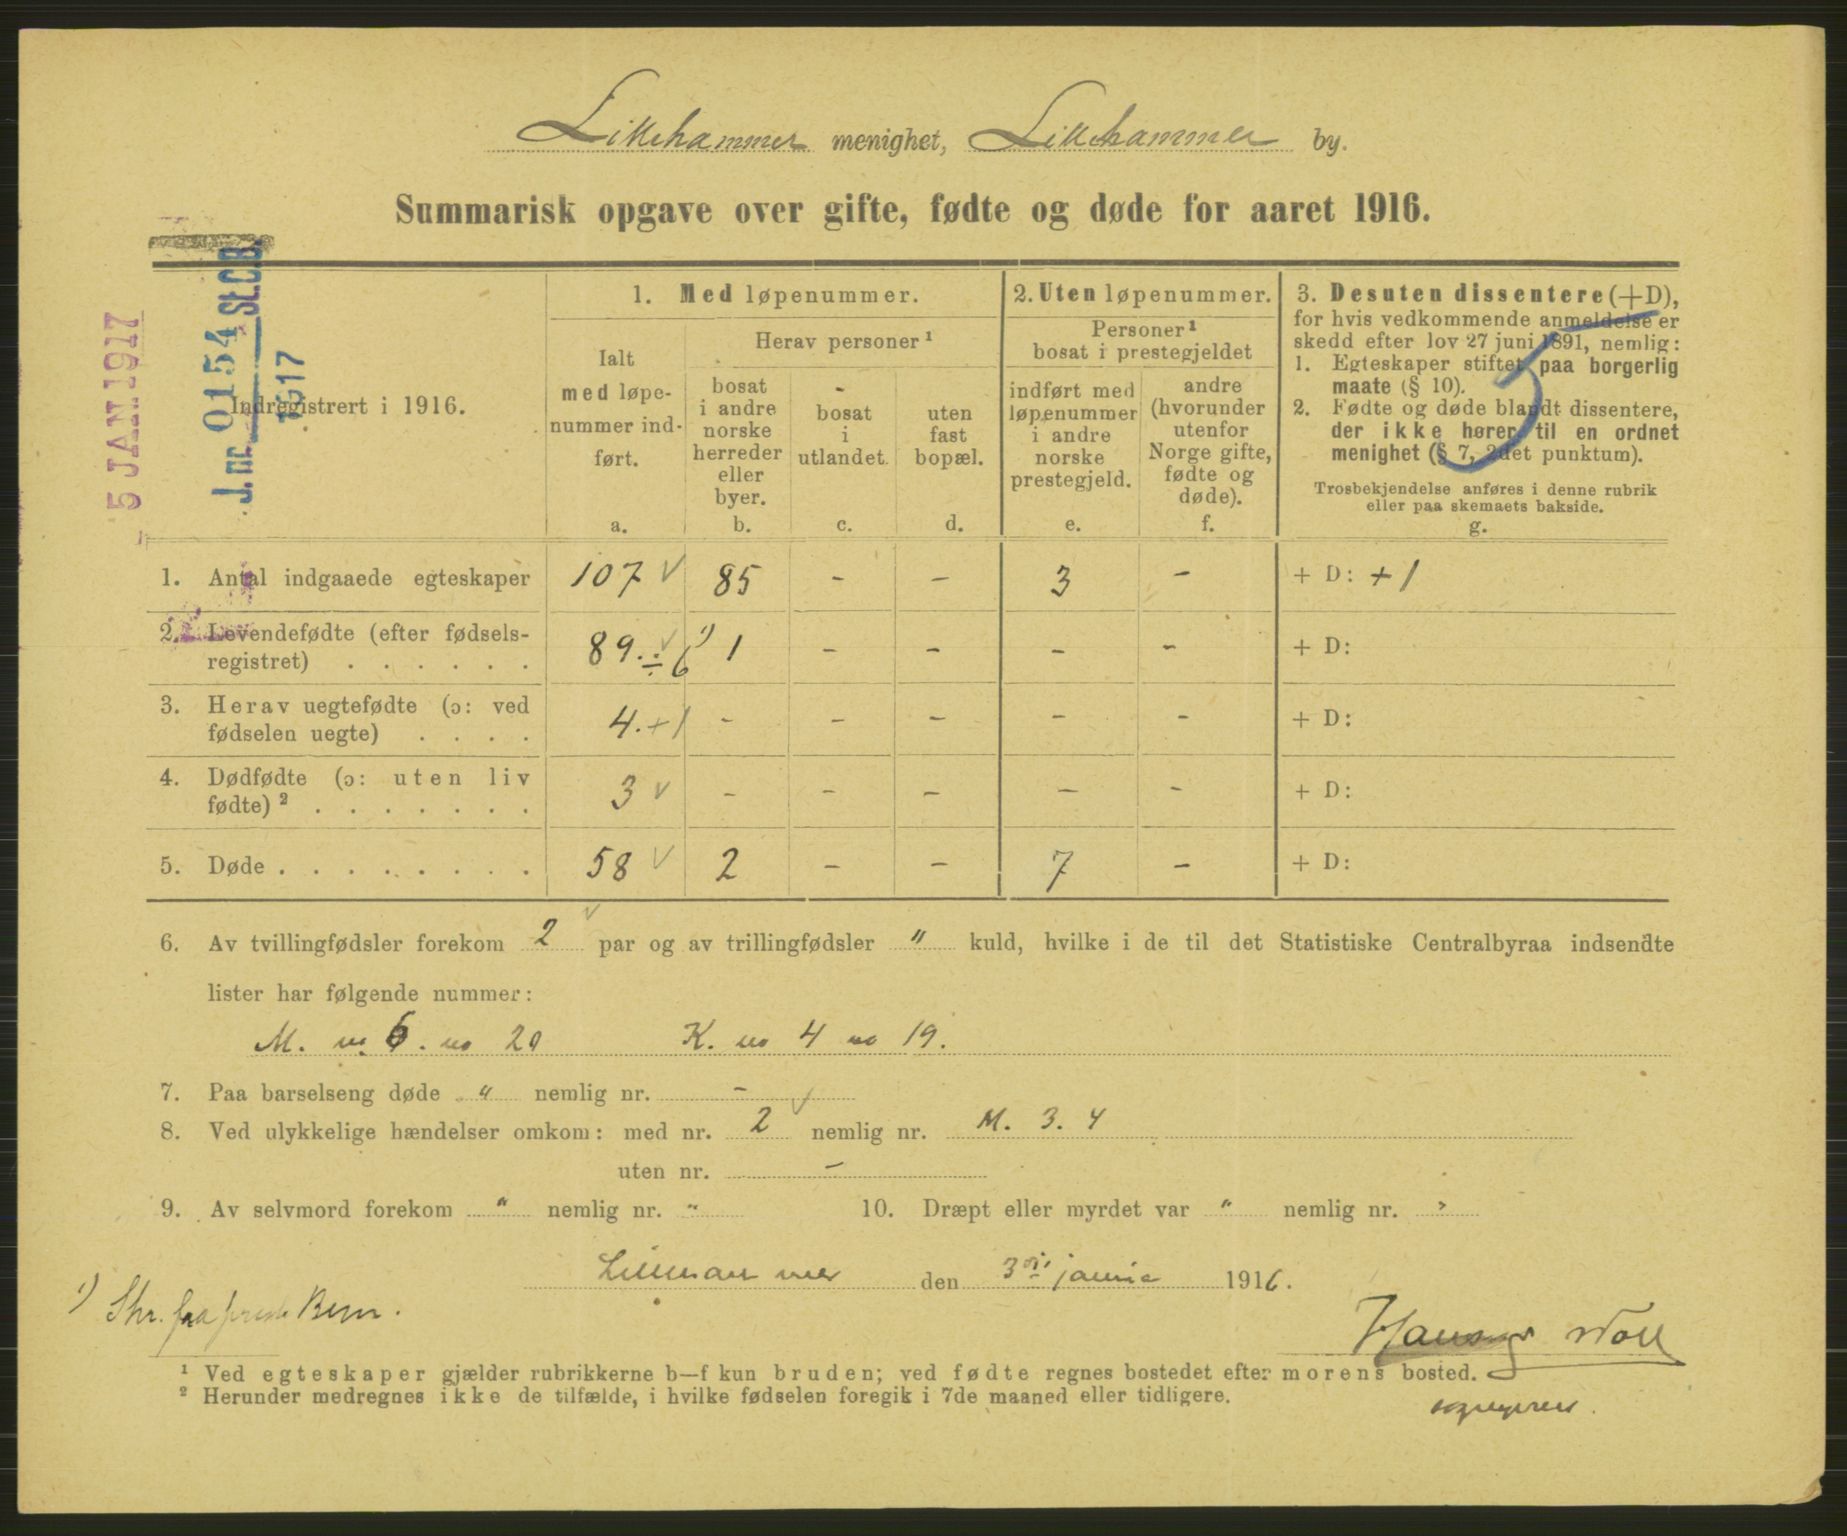 Lillehammer menighet, Lillehammer by.
Summarisk opgave over gifte, fødte og døde for aaret 1916.
5 JAN. 1917
J. nr. 0154 St.C.B.
1917
Indregistrert i 1916.
1. Med løpenummer.
Ialt
med løpe-
nummer ind-
ført.
a.
Herav personer ¹
bosat
i andre
norske
herreder
eller
byer.
b.
bosat
i
utlandet.
c.
uten
fast
bopæl.
d.
2. Uten løpenummer.
Personer ¹
bosat i prestegjeldet
indført med
løpenummer
i andre
norske
prestegjeld.
e.
andre
(hvorunder
utenfor
Norge gifte,
fødte og
døde).
f.
3. Desuten dissentere (+D),
for hvis vedkommende anmeldelse er
skedd efter lov 27 juni 1891, nemlig:
1. Egteskaper stiftet paa borgerlig
maate (§ 10).
2. Fødte og døde blandt dissentere,
der ikke hører til en ordnet
menighet (§ 7, 2det punktum).
Trosbekjendelse anføres i denne rubrik
eller paa skemaets bakside.
g.
5
1. Antal indgaaede egteskaper 107 ✓ 85 - - 3 - + D: + 1
2. Levendefødte (efter fødsels-
registret) . . . . . . 89. ✓ ÷ 6 ¹) 1 - - - - + D:
3. Herav uegtefødte (ɔ: ved
fødselen uegte) . . . . 4. + 1 - - - - - + D:
4. Dødfødte (ɔ: uten liv
fødte) ² . . . . . . . 3 ✓ - - - - - + D:
5. Døde . . . . . . . . 58 ✓ 2 - - 7 - + D:
6. Av tvillingfødsler forekom 2 ✓ par og av trillingfødsler " kuld, hvilke i de til det Statistiske Centralbyraa indsendte
lister har følgende nummer:
M. no 6. no 20 K. no 4 no 19.
7. Paa barselseng døde " nemlig nr. -
8. Ved ulykkelige hændelser omkom: med nr. 2 ✓ nemlig nr. M. 3. 4
uten nr. -
9. Av selvmord forekom " nemlig nr. " 10. Dræpt eller myrdet var " nemlig nr. "
Lillehammer den 3die januar 1916.
¹) Skr. fra
¹ Ved egteskaper gjælder rubrikkerne b—f kun bruden; ved fødte regnes bostedet efter morens bosted.
² Herunder medregnes ikke de tilfælde, i hvilke fødselen foregik i 7de maaned eller tidligere.
sogneprest.